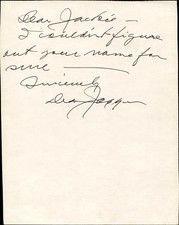 Dear Jackie —
I couldn't figure
out your name for
sure —
Sincerely
Dean Jagger